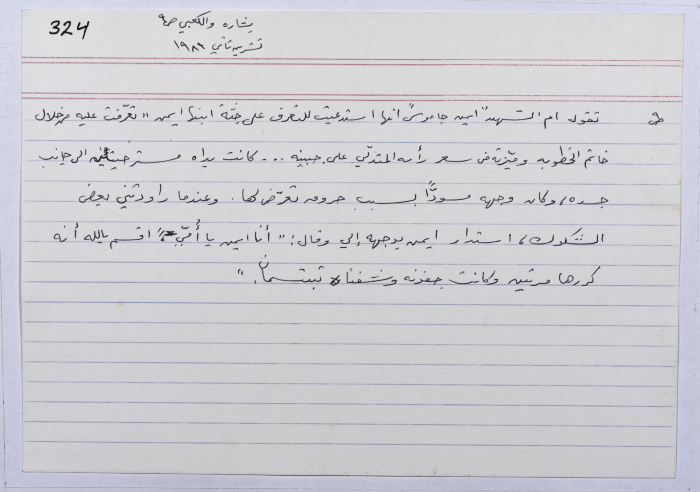 324
بشاره والكعبي ص٩
تشرين ثاني ١٩٨٩
تقول ام الشهيد "ايمن جاموس" انها استدعيت للتعرف على جثة ابنها ايمن "تعرّفت عليه من خلال
خاتم الخطوبه وميّزته من شعر رأسه المتدلّي على جبينه ... كانت يداه مسترخيتين الى جانب
جسده، وكان وجهه مسودًّا بسبب حروق تعرّض لها. وعندما راودتني بعض
الشكوك، استدار ايمن بوجهه إلي وقال: "أنا ايمن يا أُمّي"، اقسم بالله أنه
كررها مرتين وكانت جفونه وشفتاه تبتسمان."